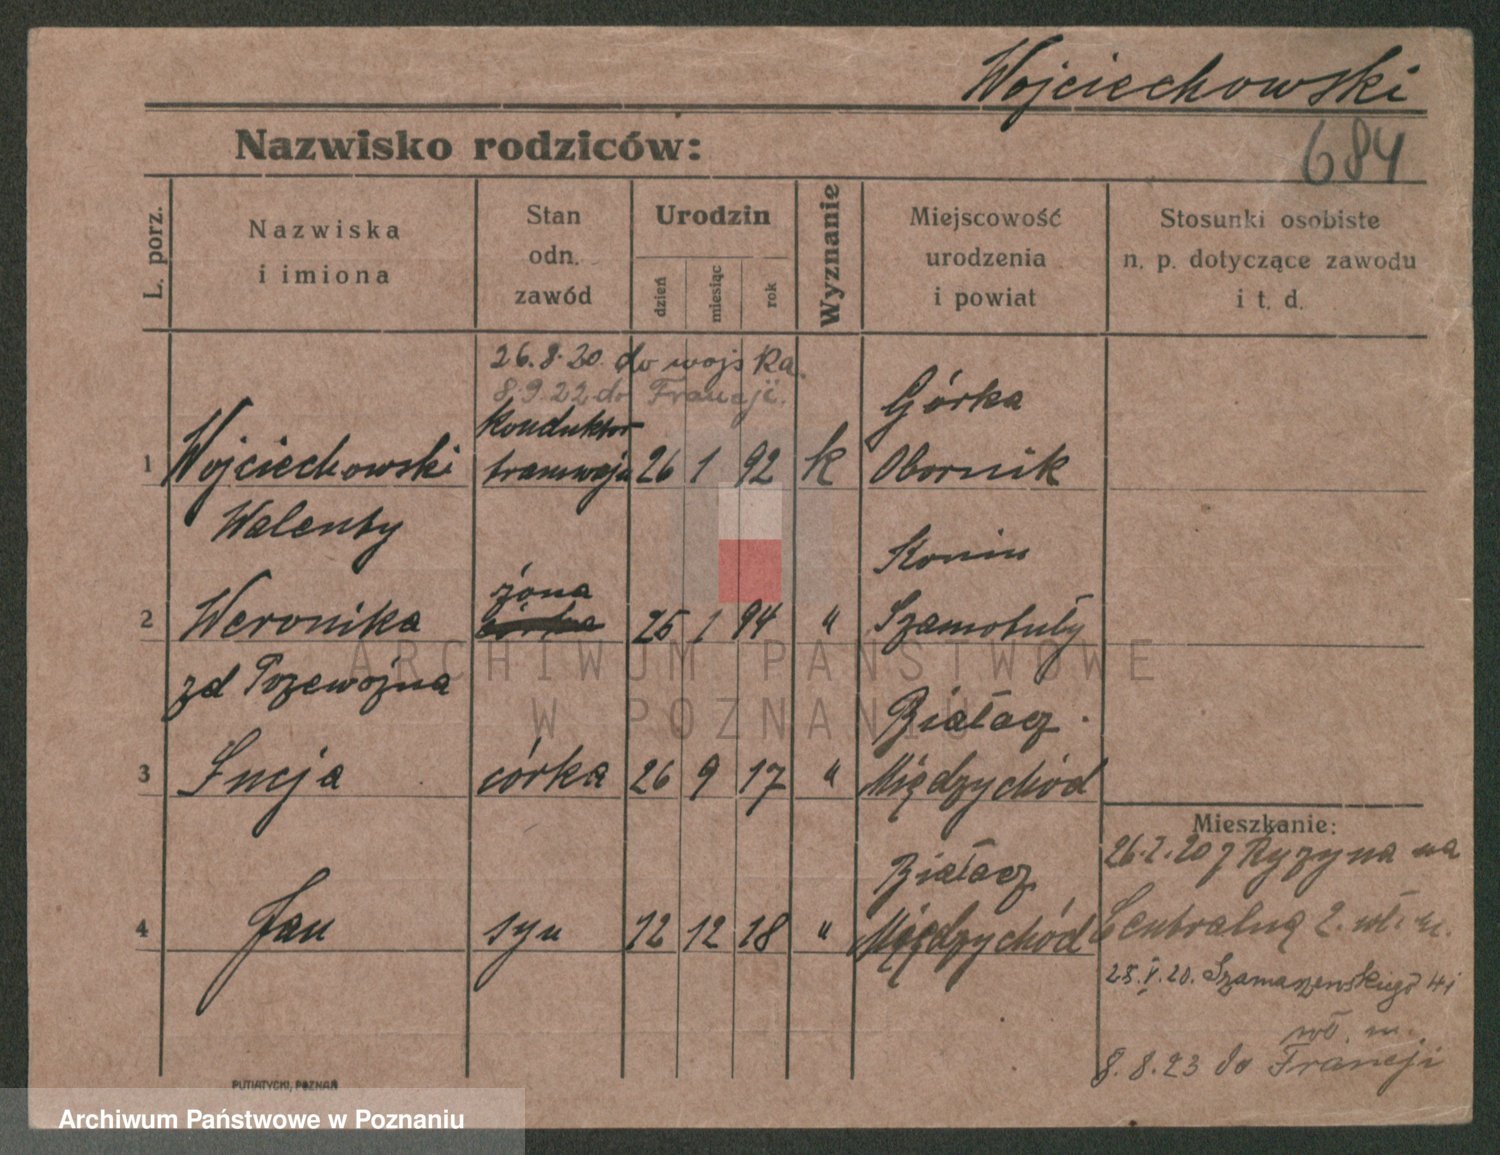 Wojciechowski
684
Nazwisko rodziców:
L. porz.
Nazwiska
i imiona
Stan
odn.
zawód
Urodzin
dzień
miesiąc
rok
Wyznanie
Miejscowość
urodzenia
i powiat
Stosunki osobiste
n. p. dotyczące zawodu
i t. d.
26.8.20. do wojska.
8.9.22 do Francji.
1 Wojciechowski konduktor tramwaju 26 1 92 k Górka Obornik
Walenty
2 Weronika żona 25 1 94 " Konin Szamotuły
zd
3 Łucja córka 26 9 17 " Białacz Międzychód
4 Jan syn 12 12 18 " Białacz Międzychód
Mieszkanie:
na
Centralną 2. wł. m.
wł. m.
8.8.23 do Francji
PUTIATYCKI, POZNAŃ
ARCHIWUM PAŃSTWOWE
W POZNANIU
Archiwum Państwowe w Poznaniu